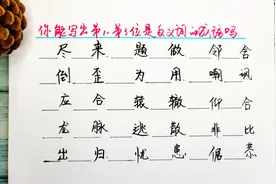 你能写出第1、第3位是反义词的成语吗
尽 来 题 做 邻 舍
倒 歪 为 用 嘲 讽
应 合 辕 辙 仰 合
龙 脉 逃 散 非 比
出 归 忧 患 倨 恭